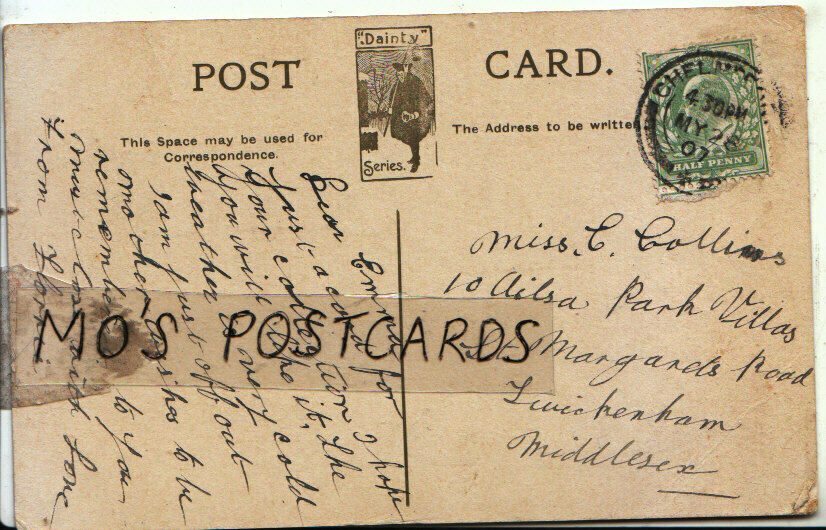 POST CARD.
"Dainty"
Series.
This Space may be used for
Correspondence.
The Address to be written
CHELMSFORD
4.30PM
MY 2
07
HALF PENNY
Dear Emma
Just a card for
your collection I hope
you will like it. the
weather is very cold
I am just off out
mother wishes to be
remembered to you
must with love
from Florri
Miss. C. Collins
10 Ailsa Park Villas
St Margarets Road
Twickenham
Middlesex
MO'S POSTCARDS